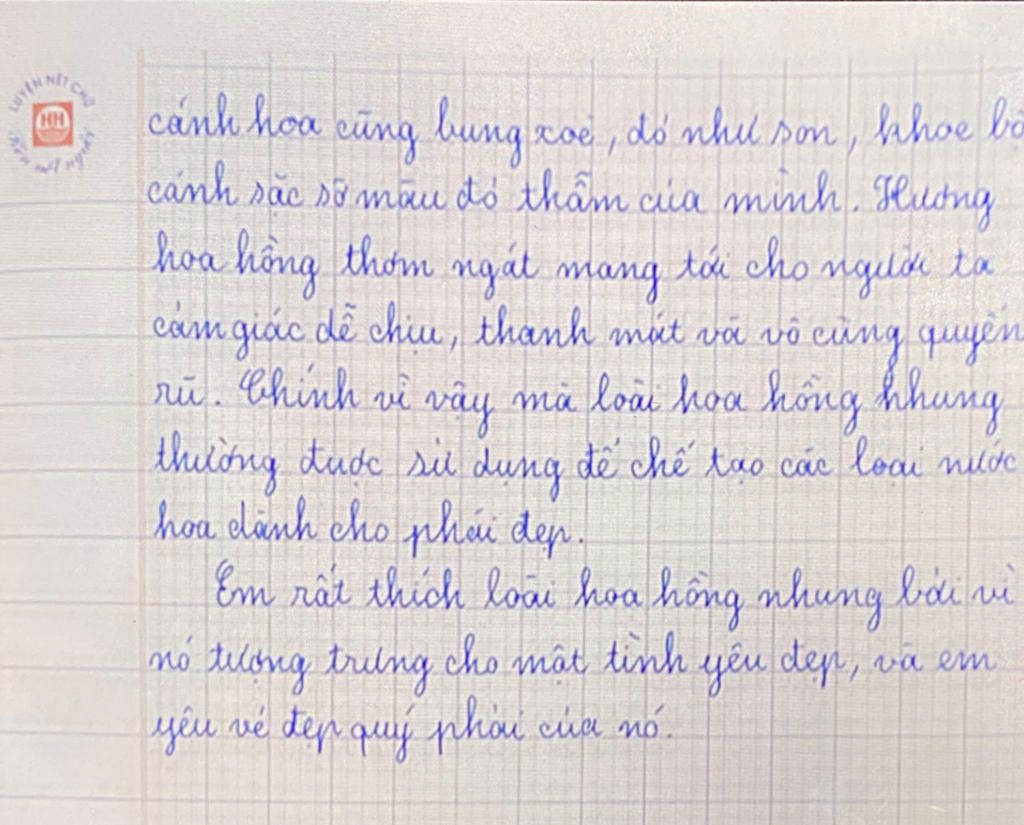 LUYỆN NÉT CHỮ
HH
cánh hoa cũng bung xoè, đỏ như son, khoe bộ
cánh sặc sỡ màu đỏ thẫm của mình. Hương
hoa hồng thơm ngát mang tới cho người ta
cảm giác dễ chịu, thanh mát và vô cùng quyến
rũ. Chính vì vậy mà loài hoa hồng nhung
thường được sử dụng để chế tạo các loại nước
hoa dành cho phái đẹp.
Em rất thích loài hoa hồng nhung bởi vì
nó tượng trưng cho một tình yêu đẹp, và em
yêu vẻ đẹp quý phái của nó.